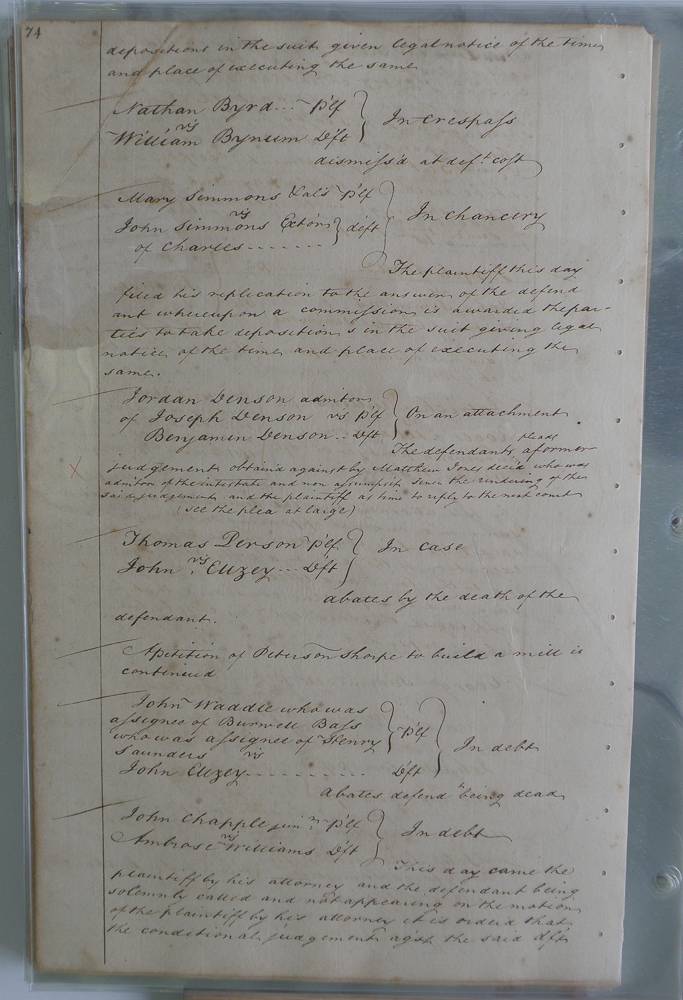 74
depositions in the suit given legal notice of the time
and place of executing the same
Nathan Byrd ... Plf
vs
William Bynum Dft
In trespass
dismiss'd at deft cost
Mary Simmons &als Plf
vs
John Simmons Extors deft
of Charles .......
In Chancery
The plaintiff this day
filed his replication to the answer of the defend
ant whereupon a commission is awarded the par-
ties to take depositions in the suit giving legal
notice of the time and place of executing the
same.
Jordan Denson admitor
of Joseph Denson vs Plf
Benjamin Denson .. Dft
On an attachment
The defendants pleads a former
judgement obtain'd against by Matthew Jones dec'd who was
admitor of the intestate and non assumpsit since the rendering of the
said judgement and the plaintiff as time to reply to the next court
(see the plea at large)
Thomas Person Plf
vs
John Cuzey ... Dft
In case
abates by the death of the
defendant.
A petition of Peterson Thorpe to build a mill is
continued
John Waddie who was
assignee of Burwell Bass
who was assignee of Henry
Saunders
Plf
vs
John Cuzey ......... Dft
In debt
abates defend.t being dead
John Chapple junr. Plf
vs
Ambrose Williams Dft
In debt
This day came the
plaintiff by his attorney and the defendant being
solemnly called and not appearing on the motion
of the plaintiff by his attorney it is order'd that
the conditional judgement agst the said dft